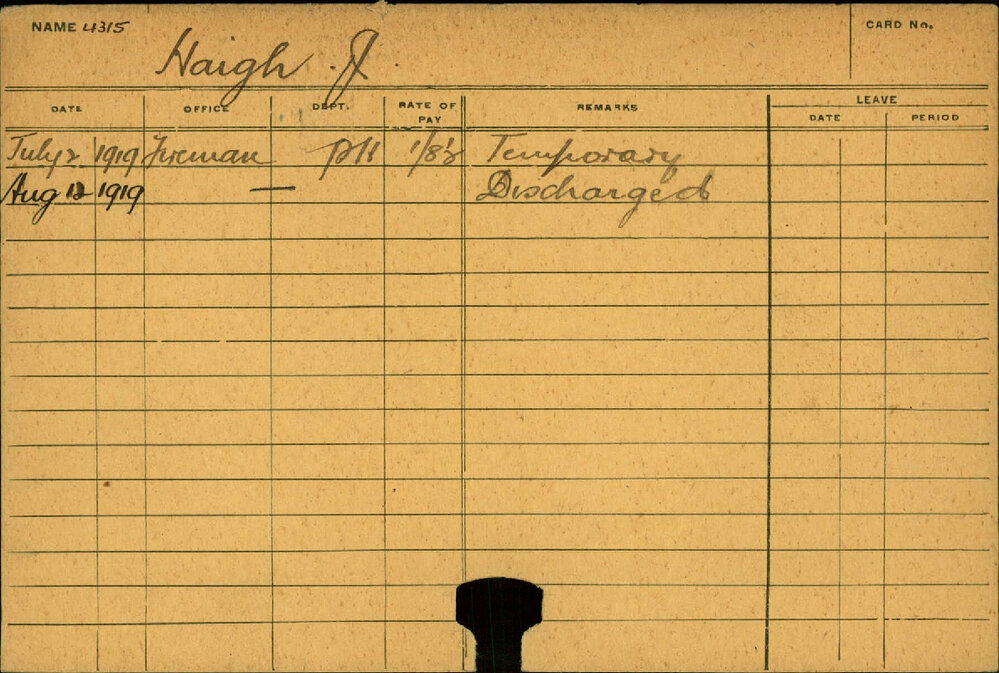 NAME 4315 CARD No.
Haigh J.
DATE OFFICE DEPT. RATE OF PAY REMARKS LEAVE
DATE PERIOD
July 2 1919 Fireman PH Temporary
Aug 12 1919 — Discharged